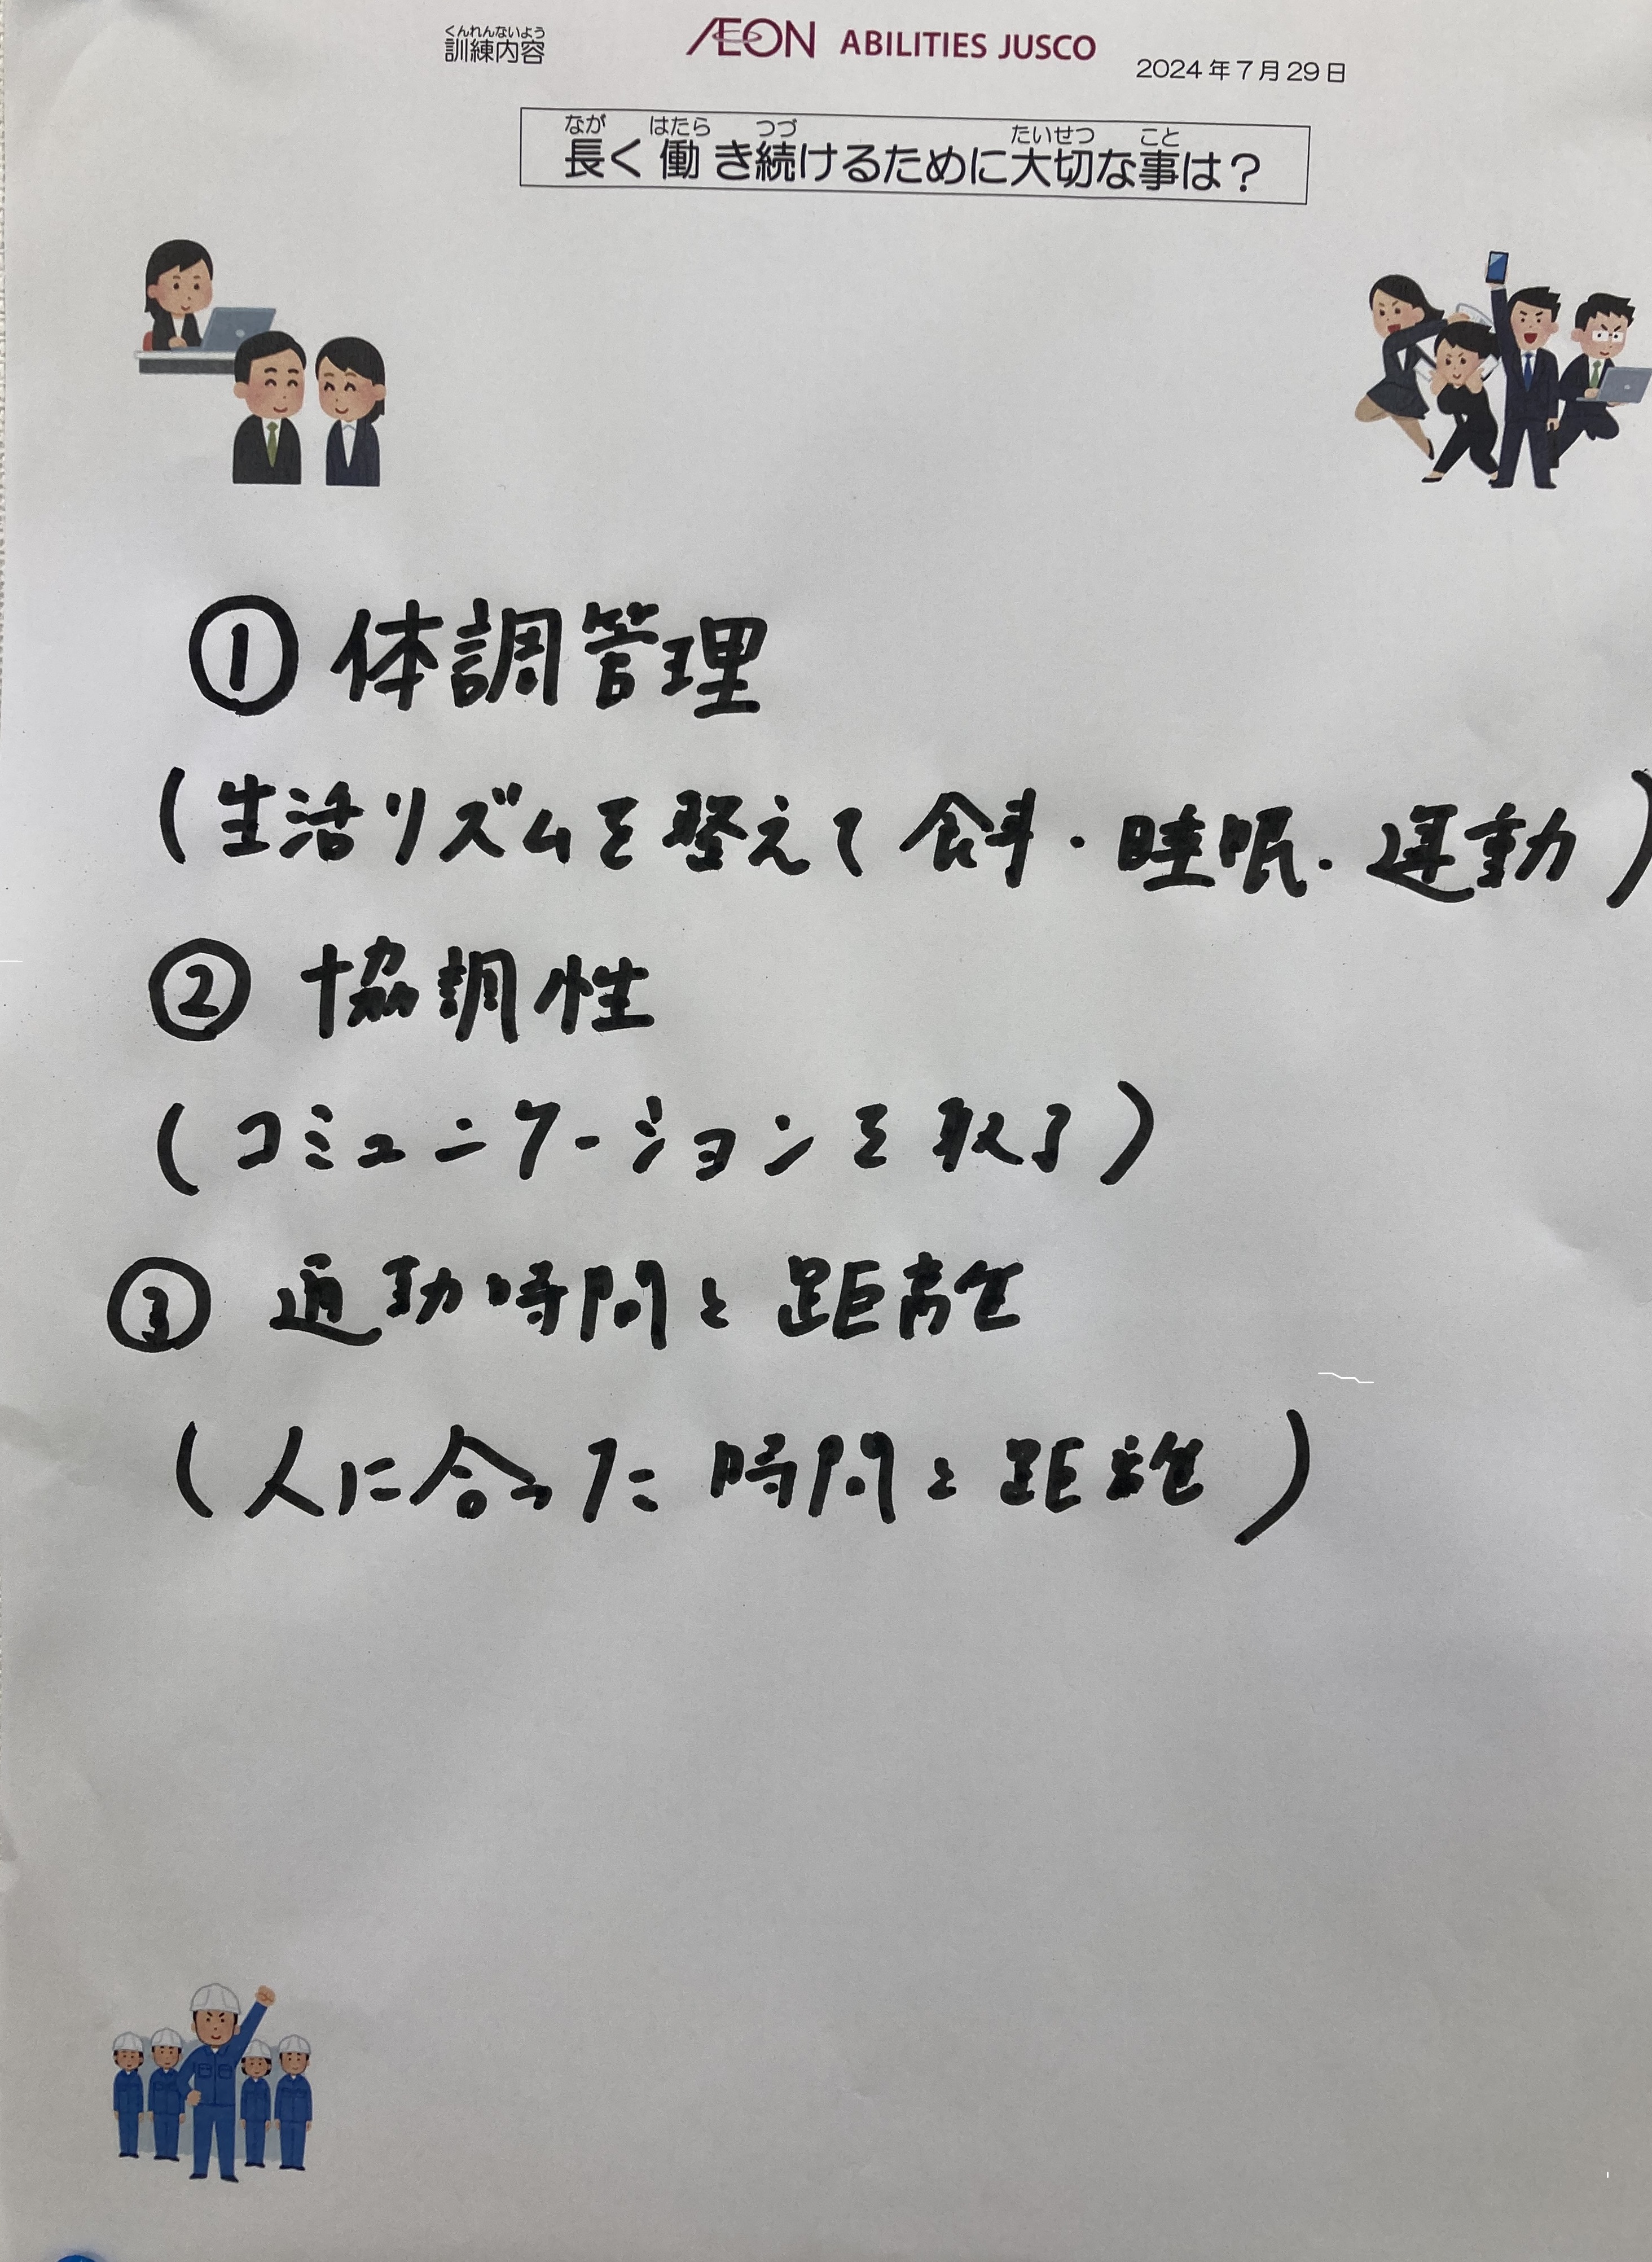 くんれんないよう
訓練内容
ÆON ABILITIES JUSCO
2024年7月29日
なが はたら つづ たいせつ こと
長く働き続けるために大切な事は？
① 体調管理
(生活リズムを整えて食事・睡眠・運動)
② 協調性
(コミュニケーションを取る)
③ 通勤時間と距離
(人に合った時間と距離)